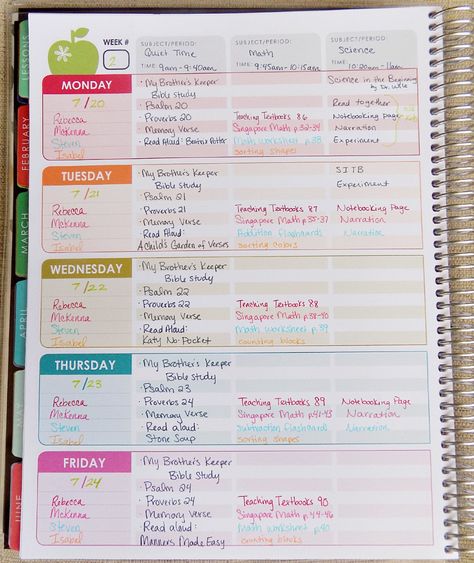 LESSONS
FEBRUARY
MARCH
APRIL
MAY
JUNE
WEEK #
2
SUBJECT/PERIOD:
Quiet Time
TIME: 9am - 9:40am
SUBJECT/PERIOD:
Math
TIME: 9:45am-10:15am
SUBJECT/PERIOD:
Science
TIME: 10:20am - 11am
MONDAY
7/20
Rebecca
McKenna
Steven
Isabel
• My Brother's Keeper
Bible Study
• Psalm 20
• Proverbs 20
• Memory Verse
• Read Aloud: Beatrix Potter
Teaching Textbooks 86
Singapore Math p.32-34
Math worksheet p.38
sorting shapes
Science in the Beginning
by Dr. Wile
Read together
Notebooking Page
Narration
Experiment
TUESDAY
7/21
Rebecca
McKenna
Steven
Isabel
• My Brother's Keeper
Bible Study
• Psalm 21
• Proverbs 21
• Memory Verse
• Read Aloud:
A Child's Garden of Verses
Teaching Textbooks 87
Singapore Math p.35-37
Addition flashcards
sorting colors
SITB
Experiment
Notebooking Page
Narration
Narration
WEDNESDAY
7/22
Rebecca
McKenna
Steven
Isabel
• My Brother's Keeper
Bible Study
• Psalm 22
• Proverbs 22
• Memory Verse
• Read Aloud:
Katy No-Pocket
Teaching Textbooks 88
Singapore Math p.38-40
Math worksheet p.39
counting blocks
THURSDAY
7/23
Rebecca
McKenna
Steven
Isabel
• My Brother's Keeper
Bible Study
• Psalm 23
• Proverbs 24
• Memory Verse
• Read aloud:
Stone Soup
Teaching Textbooks 89
Singapore Math p.41-43
subtraction flashcards
sorting shapes
Notebooking Page
Narration
Narration
FRIDAY
7/24
Rebecca
McKenna
Steven
Isabel
• My Brother's Keeper
Bible Study
• Psalm 24
• Proverbs 24
• Memory Verse
• Read aloud:
Manners Made Easy
Teaching Textbooks 90
Singapore Math p.44-46
Math worksheet p.40
counting blocks